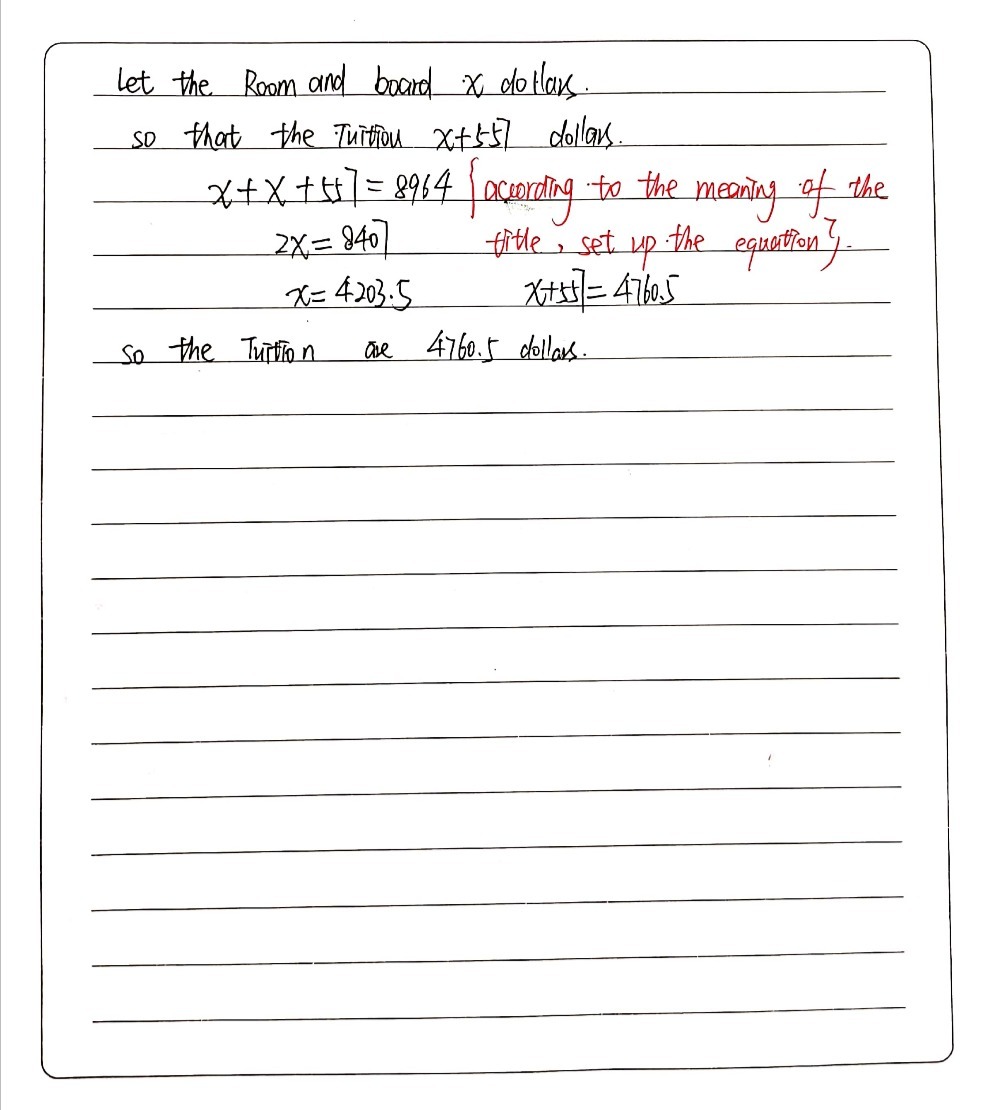 Let the Room and board x dollars.
so that the Tuition x+557 dollars.
x+x+557=8964 {according to the meaning of the
2x=8407 title, set up the equation}.
x=4203.5 x+557=4760.5
so the Tuition are 4760.5 dollars.